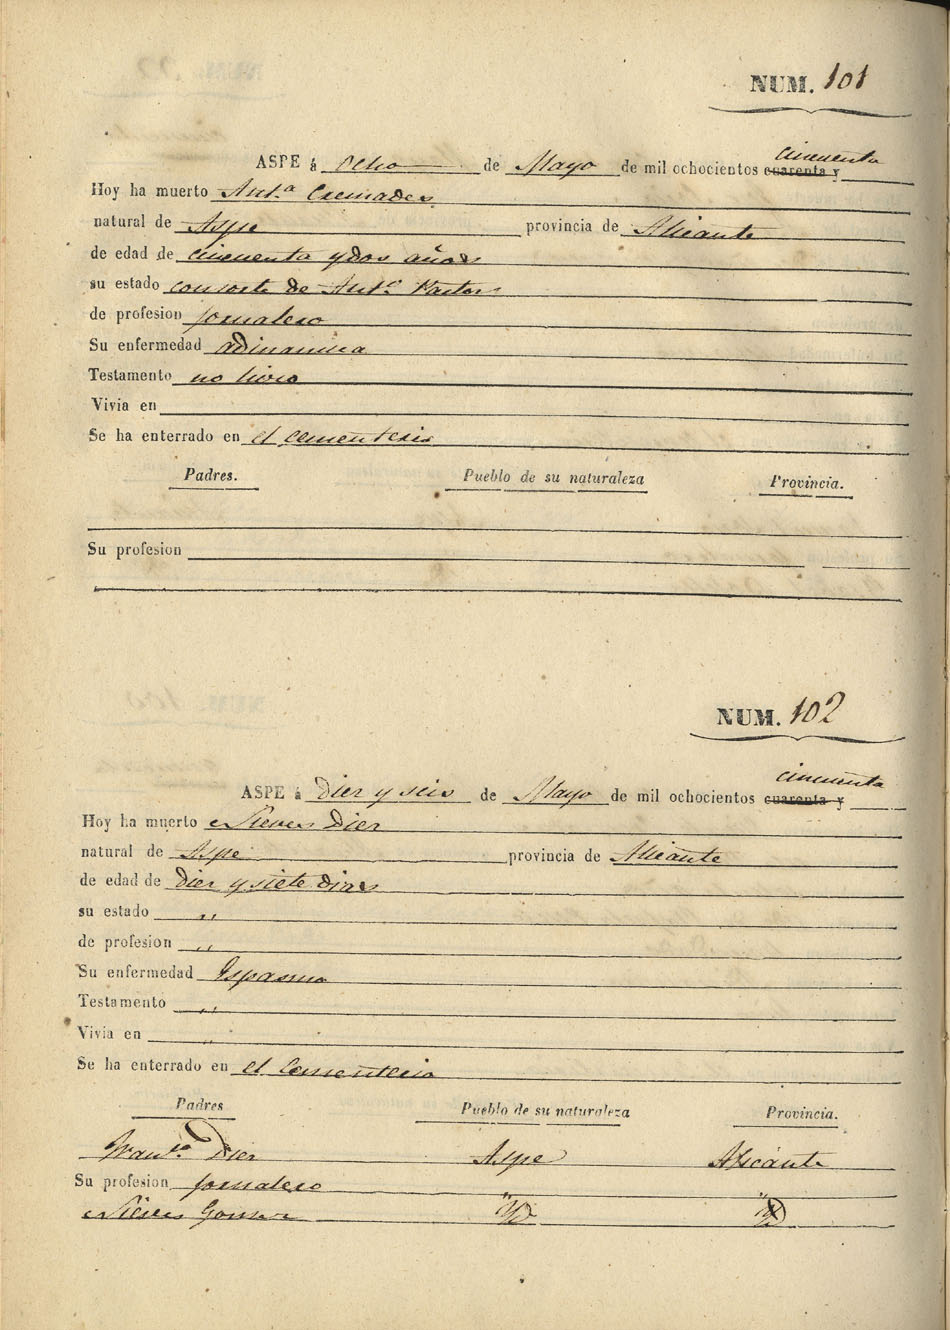 NUM. 101
cincuenta
ASPE á ocho de Mayo de mil ochocientos cuarenta y
Hoy ha muerto Ant.ª Cremades
natural de Aspe provincia de Alicante
de edad de cincuenta y dos años
su estado consorte de Ant.º Pastor
de profesion jornalero
Su enfermedad adinamica
Testamento no hizo
Vivia en
Se ha enterrado en el cementerio
Padres. Pueblo de su naturaleza Provincia.
Su profesion
NUM. 102
cincuenta
ASPE á Diez y seis de Mayo de mil ochocientos cuarenta y
Hoy ha muerto Nieves Diez
natural de Aspe provincia de Alicante
de edad de Diez y siete dias
su estado „
de profesion „
Su enfermedad Espasmo
Testamento „
Vivia en „
Se ha enterrado en el Cementerio
Padres Pueblo de su naturaleza Provincia.
Fran.co Diez Aspe Alicante
Su profesion jornalero
Nieves Yd Yd